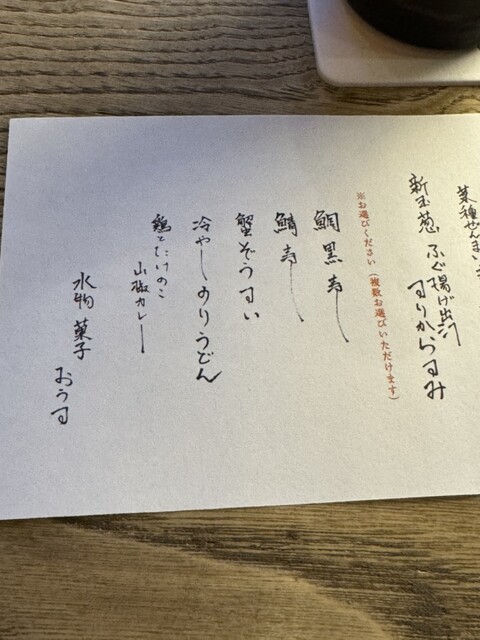 菜種ぜんまい
新玉葱 ふぐ揚げ出汁
すりからすみ
※お選びください（複数お選びいただけます）
鯛黒寿し
鯖寿し
蟹ぞうすい
冷やしのりうどん
鶏とたけのこ
山椒カレー
水物 菓子 おうす